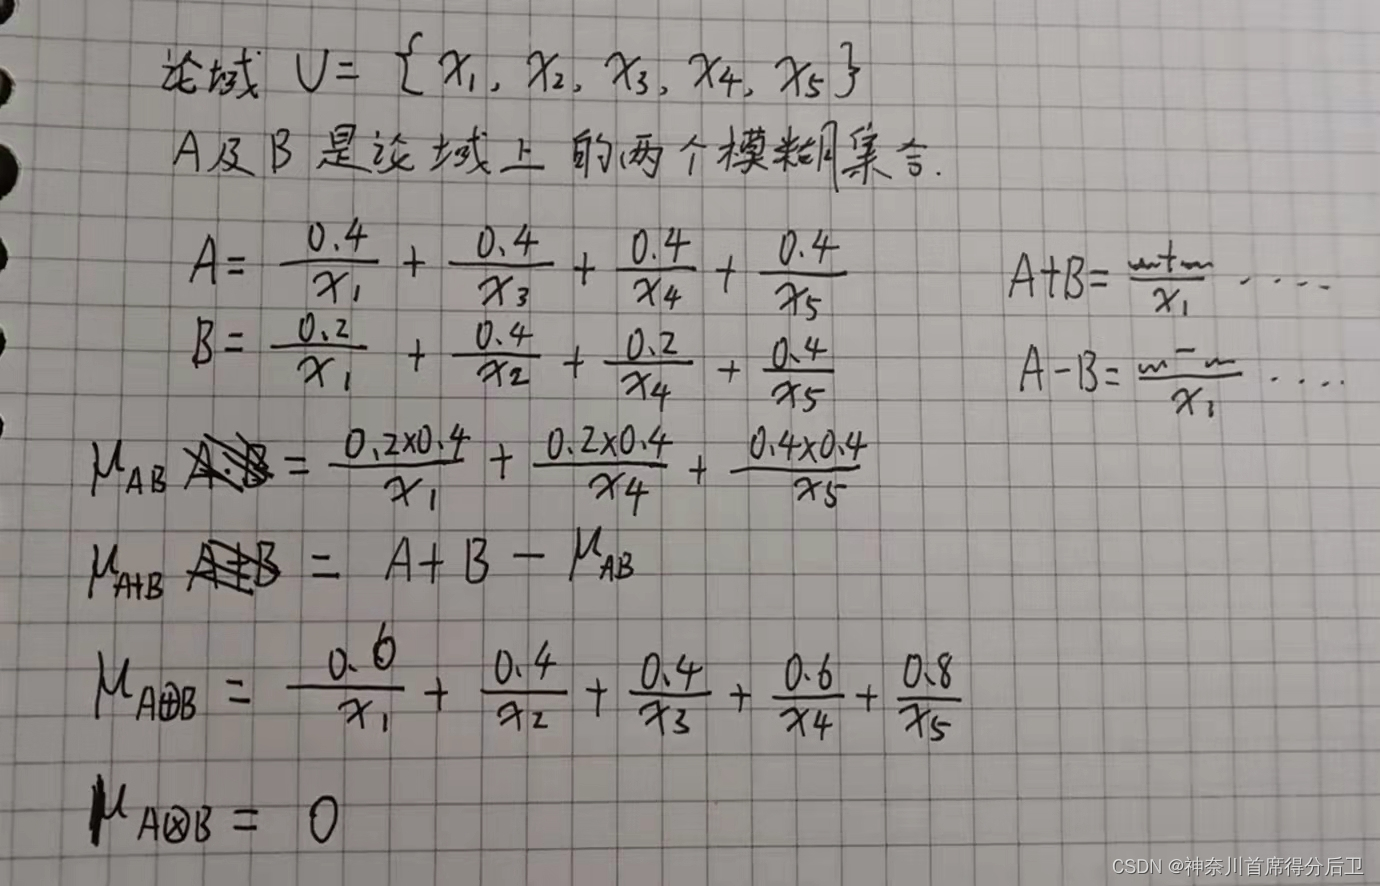 论域 U = { x₁, x₂, x₃, x₄, x₅ }
A及B是论域上的两个模糊集合.
A = 0.4/x₁ + 0.4/x₃ + 0.4/x₄ + 0.4/x₅
A+B = +/x₁ ....
B = 0.2/x₁ + 0.4/x₂ + 0.2/x₄ + 0.4/x₅
A-B = -/x₁ ....
μ_AB A·B = 0.2×0.4/x₁ + 0.2×0.4/x₄ + 0.4×0.4/x₅
μ_A+B A+B = A+B - μ_AB
μ_A⊕B = 0.6/x₁ + 0.4/x₂ + 0.4/x₃ + 0.6/x₄ + 0.8/x₅
μ_A⊗B = 0
CSDN @神奈川首席得分后卫